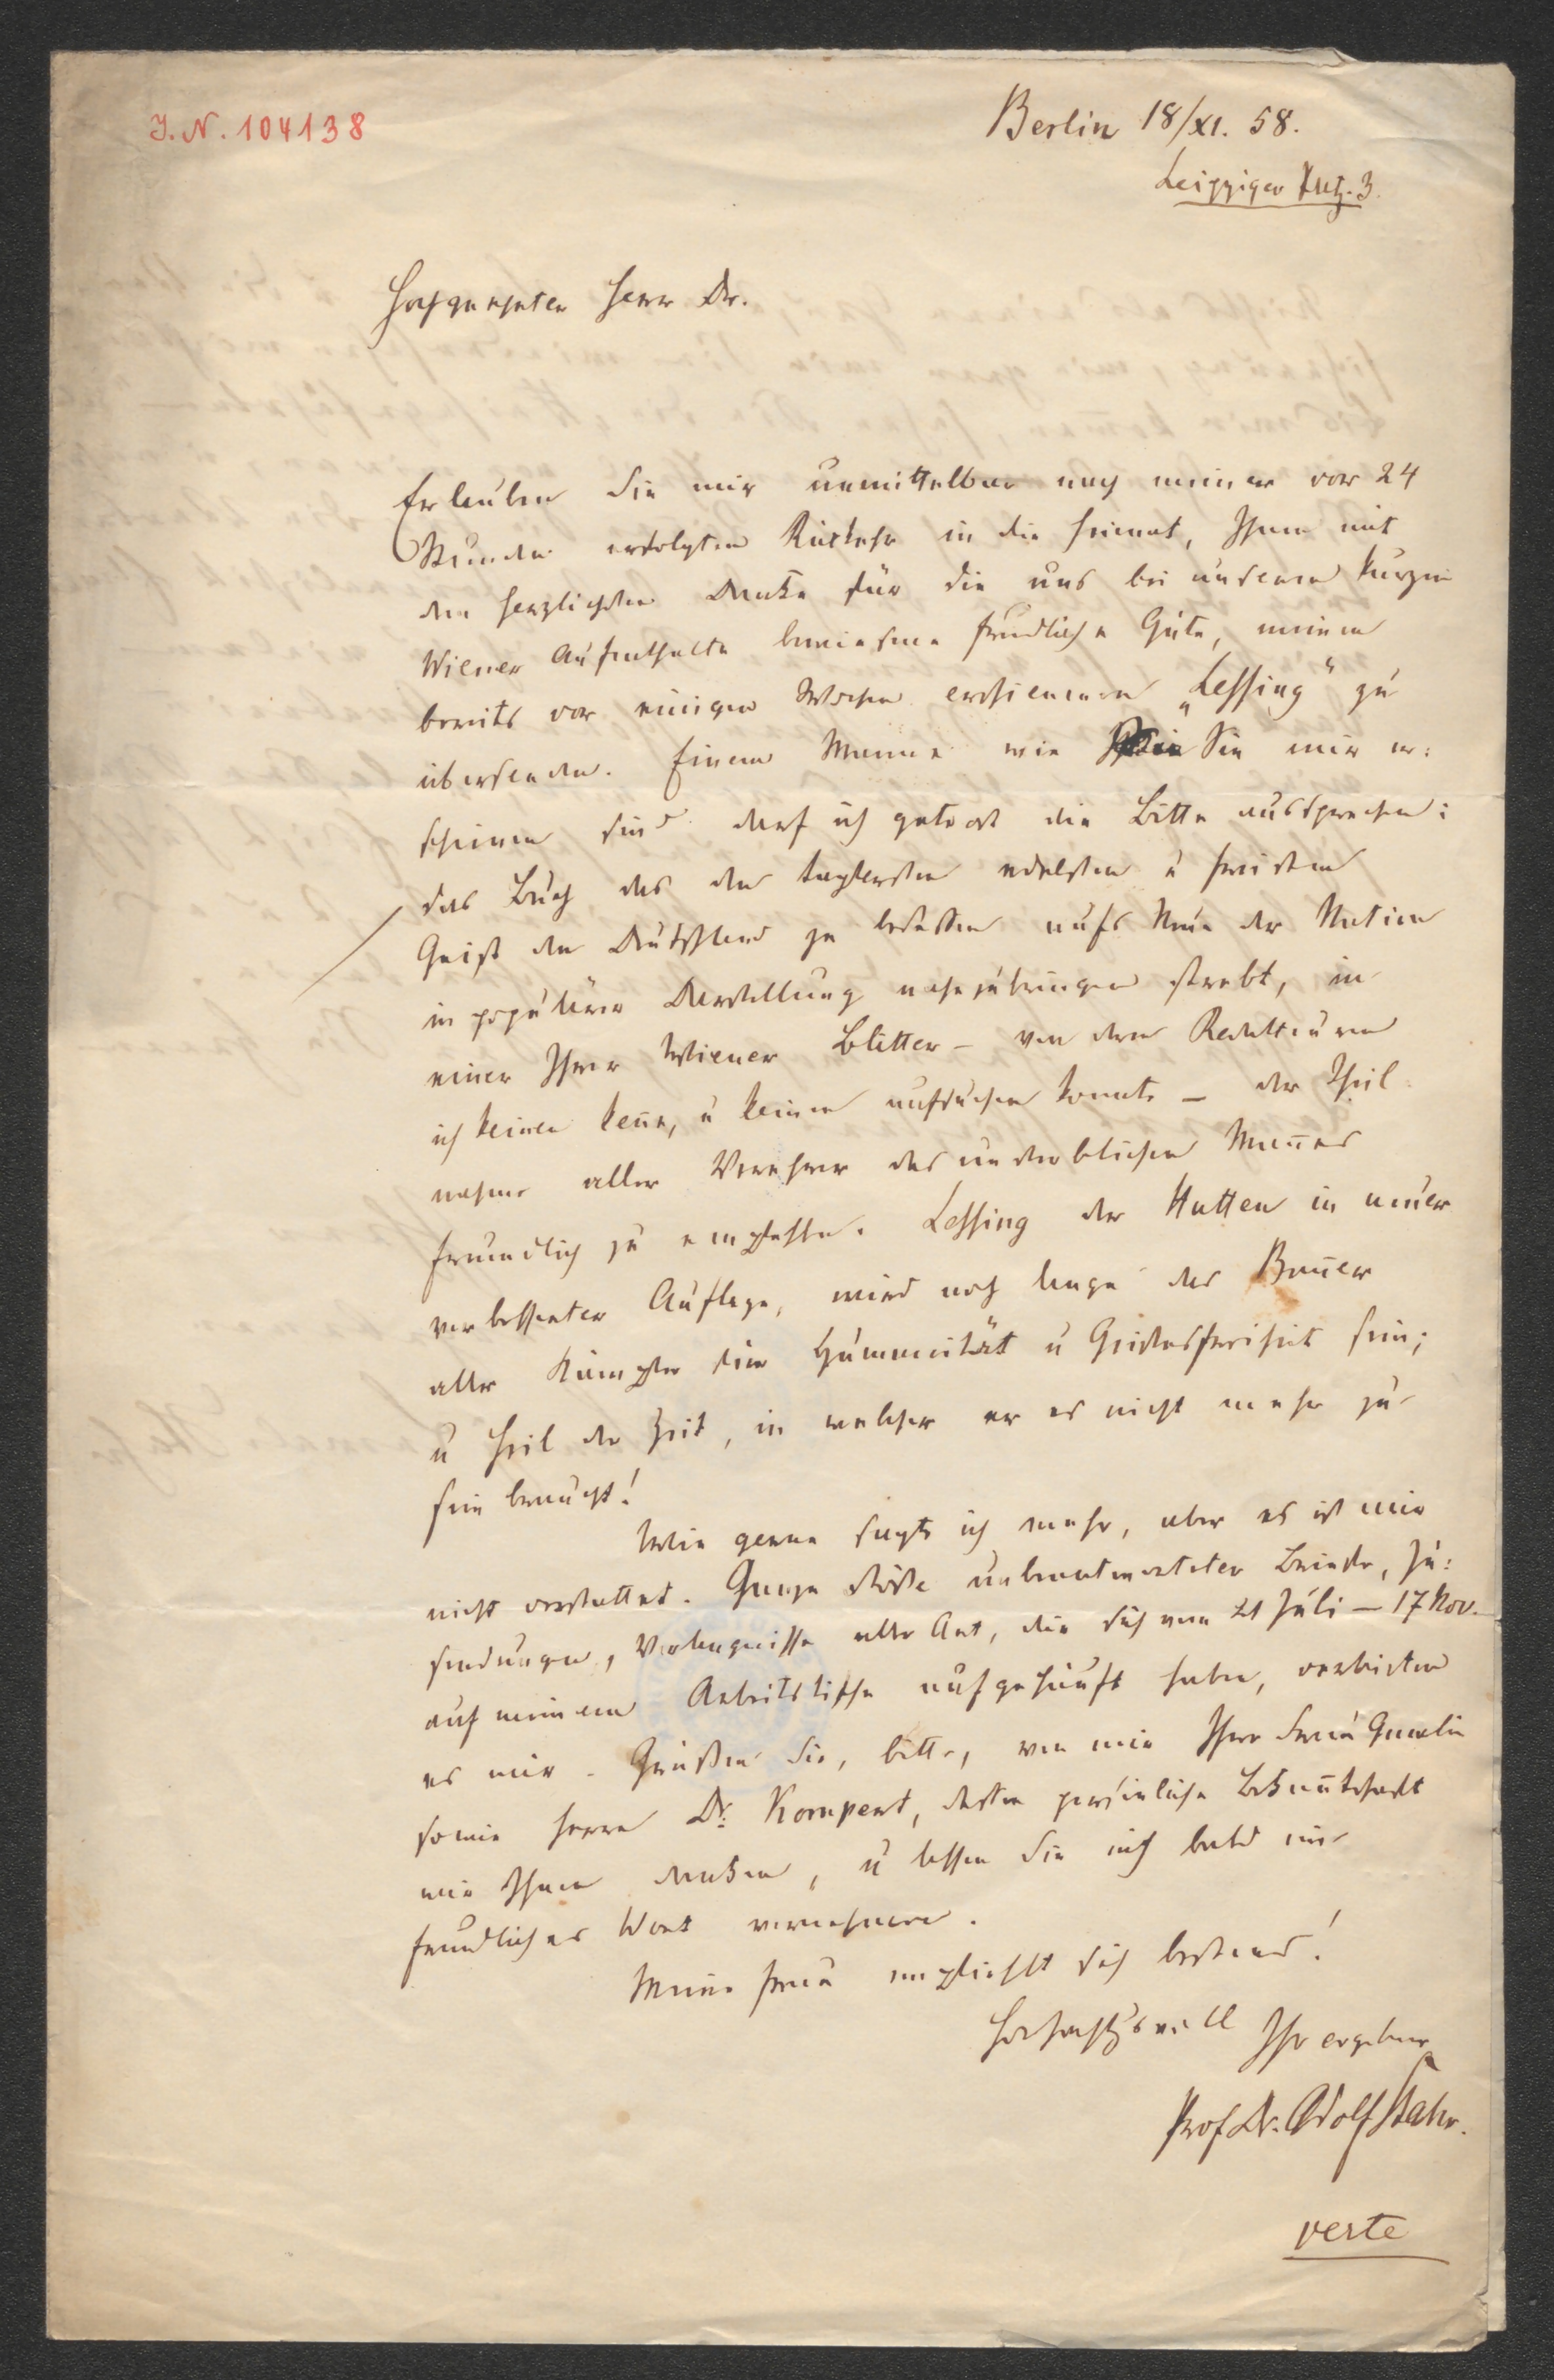 J. N. 104138
Berlin 18/XI. 58.
Leipziger Platz. 3.
Hochgeehrter Herr Dr.
Erlauben Sie mir unmittelbar nach meiner vor 24
Stunden erfolgten Rückkehr in die Heimat, Ihnen mit
dem herzlichsten Danke für die uns bei unserem kurzen
Wiener Aufenthalte bewiesene freundliche Güte, meinen
bereits vor einigen Wochen erschienenen „Lessing“ zu
übersenden. Einem Manne wie Sie mir er:
schienen sind darf ich getrost die Bitte aussprechen:
das Buch das den tapfersten edelsten u freisten
Geist den Deutschland je besessen aufs Neue der Nation
in populärer Darstellung nahezubringen strebt, in
einer Ihrer Wiener Blätter – von deren Redakteuren
ich keinen kenne, u keinen aufsuchen konnte – der Theil
nahme aller Verehrer des unsterblichen Mannes
freundlich zu empfehlen. Lessing der Hutten in neuer
verbesserter Auflage, wird noch lange das Banner
aller Kämpfer für Humanität u Geistesfreiheit sein;
u Heil der Zeit, in welcher er es nicht mehr zu
sein braucht!
Wie gerne sagte ich mehr, aber es ist mir
nicht verstattet. Ganze Stöße unbeantworteter Briefe, Zu:
sendungen, Verlangnisse aller Art, die sich vom 21 Juli – 17 Nov.
auf meinem Arbeitstische aufgehäuft haben, verbieten
es mir. Grüßen Sie, bitte, von mir Ihre Frau Gemalin
sowie Herrn Dr. Kompert, dessen persönliche Bekanntschaft
wir Ihnen danken, u lassen Sie mich bald ein
freundliches Wort vernehmen.
Meine Frau empfiehlt sich bestens!
Hochachtungsvoll Ihr ergebner
Prof Dr. Adolf Stahr.
verte